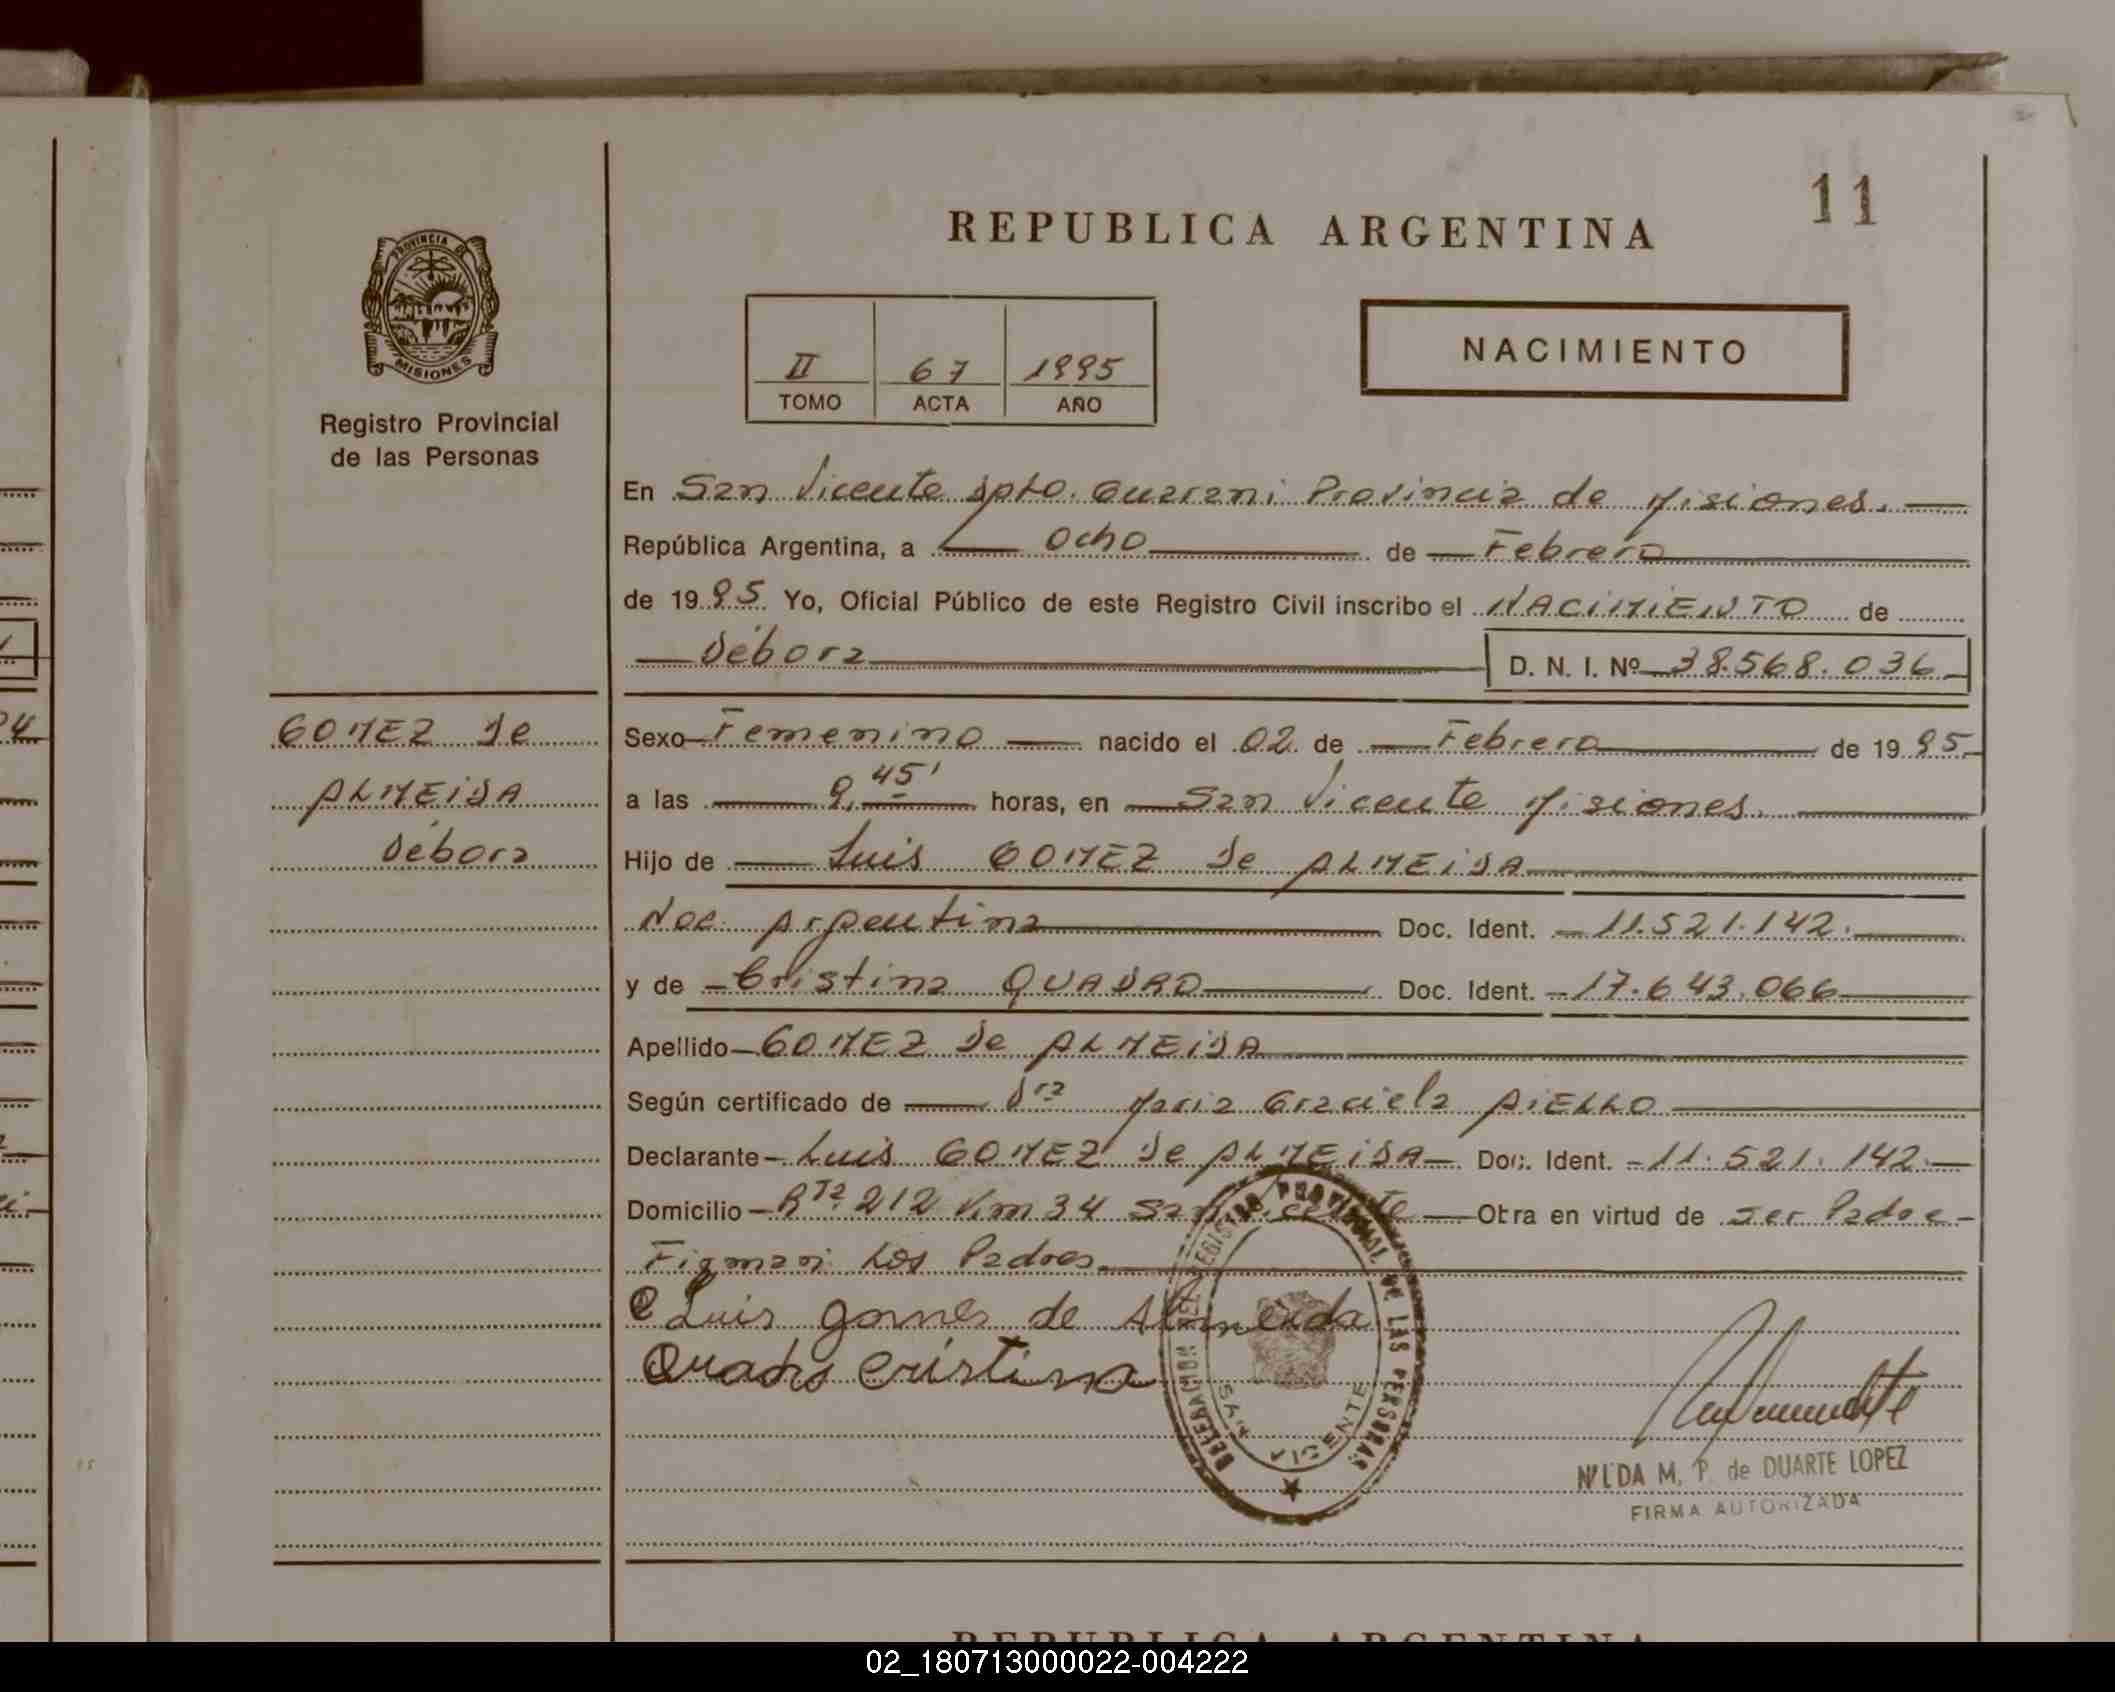 REPUBLICA ARGENTINA
11
PROVINCIA DE
MISIONES
Registro Provincial
de las Personas
II 67 1995
TOMO ACTA AÑO
NACIMIENTO
En San Vicente Dpto. Guarani Provincia de Misiones.
República Argentina, a Ocho de Febrero
de 1995 Yo, Oficial Público de este Registro Civil inscribo el NACIMIENTO de
Débora D. N. I. Nº 38.568.036
GOMEZ de
ALMEIDA
Débora
Sexo Femenino nacido el 02 de Febrero de 1995
a las 9,45' horas, en San Vicente Misiones.
Hijo de Luis GOMEZ de ALMEIDA
Nac. Argentina Doc. Ident. 11.521.142.
y de Cristina QUADRO Doc. Ident. 17.643.066
Apellido GOMEZ de ALMEIDA
Según certificado de Dra Maria Graciela AIELLO
Declarante Luis GOMEZ de ALMEIDA Doc. Ident. 11.521.142.
Domicilio Rta. 212 Km 34 San Vicente Obra en virtud de ser Padre
Firman: Los Padres.
Luis gomes de Almeida
Quadro Cristina
DELEGACION DEL REGISTRO PROVINCIAL DE LAS PERSONAS
SAN VICENTE
NILDA M. P. de DUARTE LOPEZ
FIRMA AUTORIZADA
REPUBLICA ARGENTINA
02_180713000022-004222